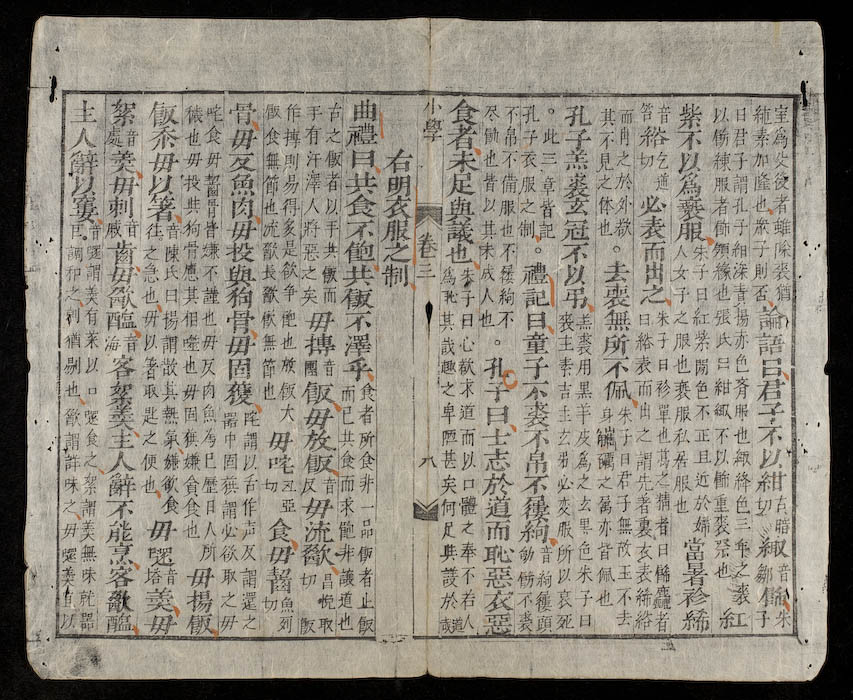 室爲父後者雖除喪猶
純素加隆也衆子則否
論語曰君子不以紺古暗切緅音鄒飾朱子
曰君子謂孔子紺深青揚赤色齊服也緅絳色三年之喪
以飾練服者飾領緣也張氏曰紺緅不以飾重喪祭也
紅
紫不以爲褻服
朱子曰紅紫間色不正且近於婦
人女子之服也褻服私居服也
當暑袗絺
音答綌乞逆必表而出之
朱子曰袗單也葛之精者曰絺麤者
曰綌表而出之謂先著裏衣表絺綌
而出之於外欲
其不見之體也
。去喪無所不佩
朱子曰君子無故玉不去
身觿礪之屬亦皆佩也
孔子羔裘玄冠不以弔
羔裘用黑羊皮爲之玄黑色朱子曰
喪主素吉主玄弔必變服所以哀死
。此三章皆記
孔子衣服之制
。禮記曰童子不裘不帛不屨絇
音絇屨頭飾不裘
不帛不備服也不屨絇不
尽飾也皆以其未成人也
。孔子曰士志於道而恥惡衣惡
食者未足與議也
朱子曰心欲求道而以口體之奉不若人
爲恥其識趣之卑陋甚矣何足與議於道哉
小學
卷三
八
右明衣服之制
曲禮曰共食不飽共飯不澤手
食者所食非一品飯者止飯
而已共食而求飽非讓道也
古之飯者以手共飯而
手有汗澤人將惡之矣
毋摶音團飯毋放飯毋流歠昌悅切
飯取
作摶則易得多是欲爭飽也放飯大
飯食無節也流歠長歠飲無節也
毋咤食毋齧
骨毋反魚肉毋投與狗骨毋固獲
咤謂以舌作声反謂還之
器中固獲謂必欲取之毋
咤食毋齧骨皆嫌不謹也毋反肉魚爲已歷口人所
穢也毋投狗骨毋固獲嫌貪食也
毋揚飯
飯黍毋以箸
陳氏曰揚謂散其熱氣嫌欲食
之急也毋以箸取匙之便也
毋𡄺音塔羹毋
絮音處羹毋刺齒毋歠醢音海客絮羹主人辭不能烹客歠醢
主人辭以窶